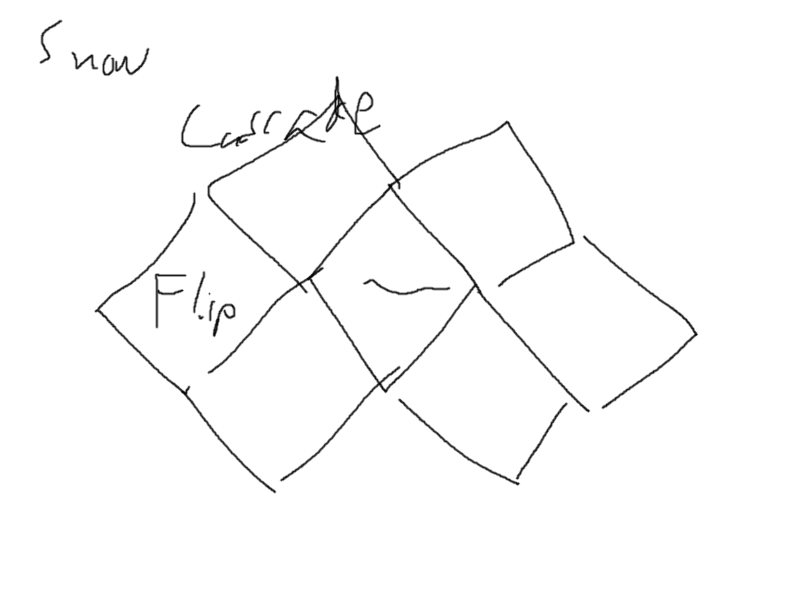 Snow
Cascade
Flip